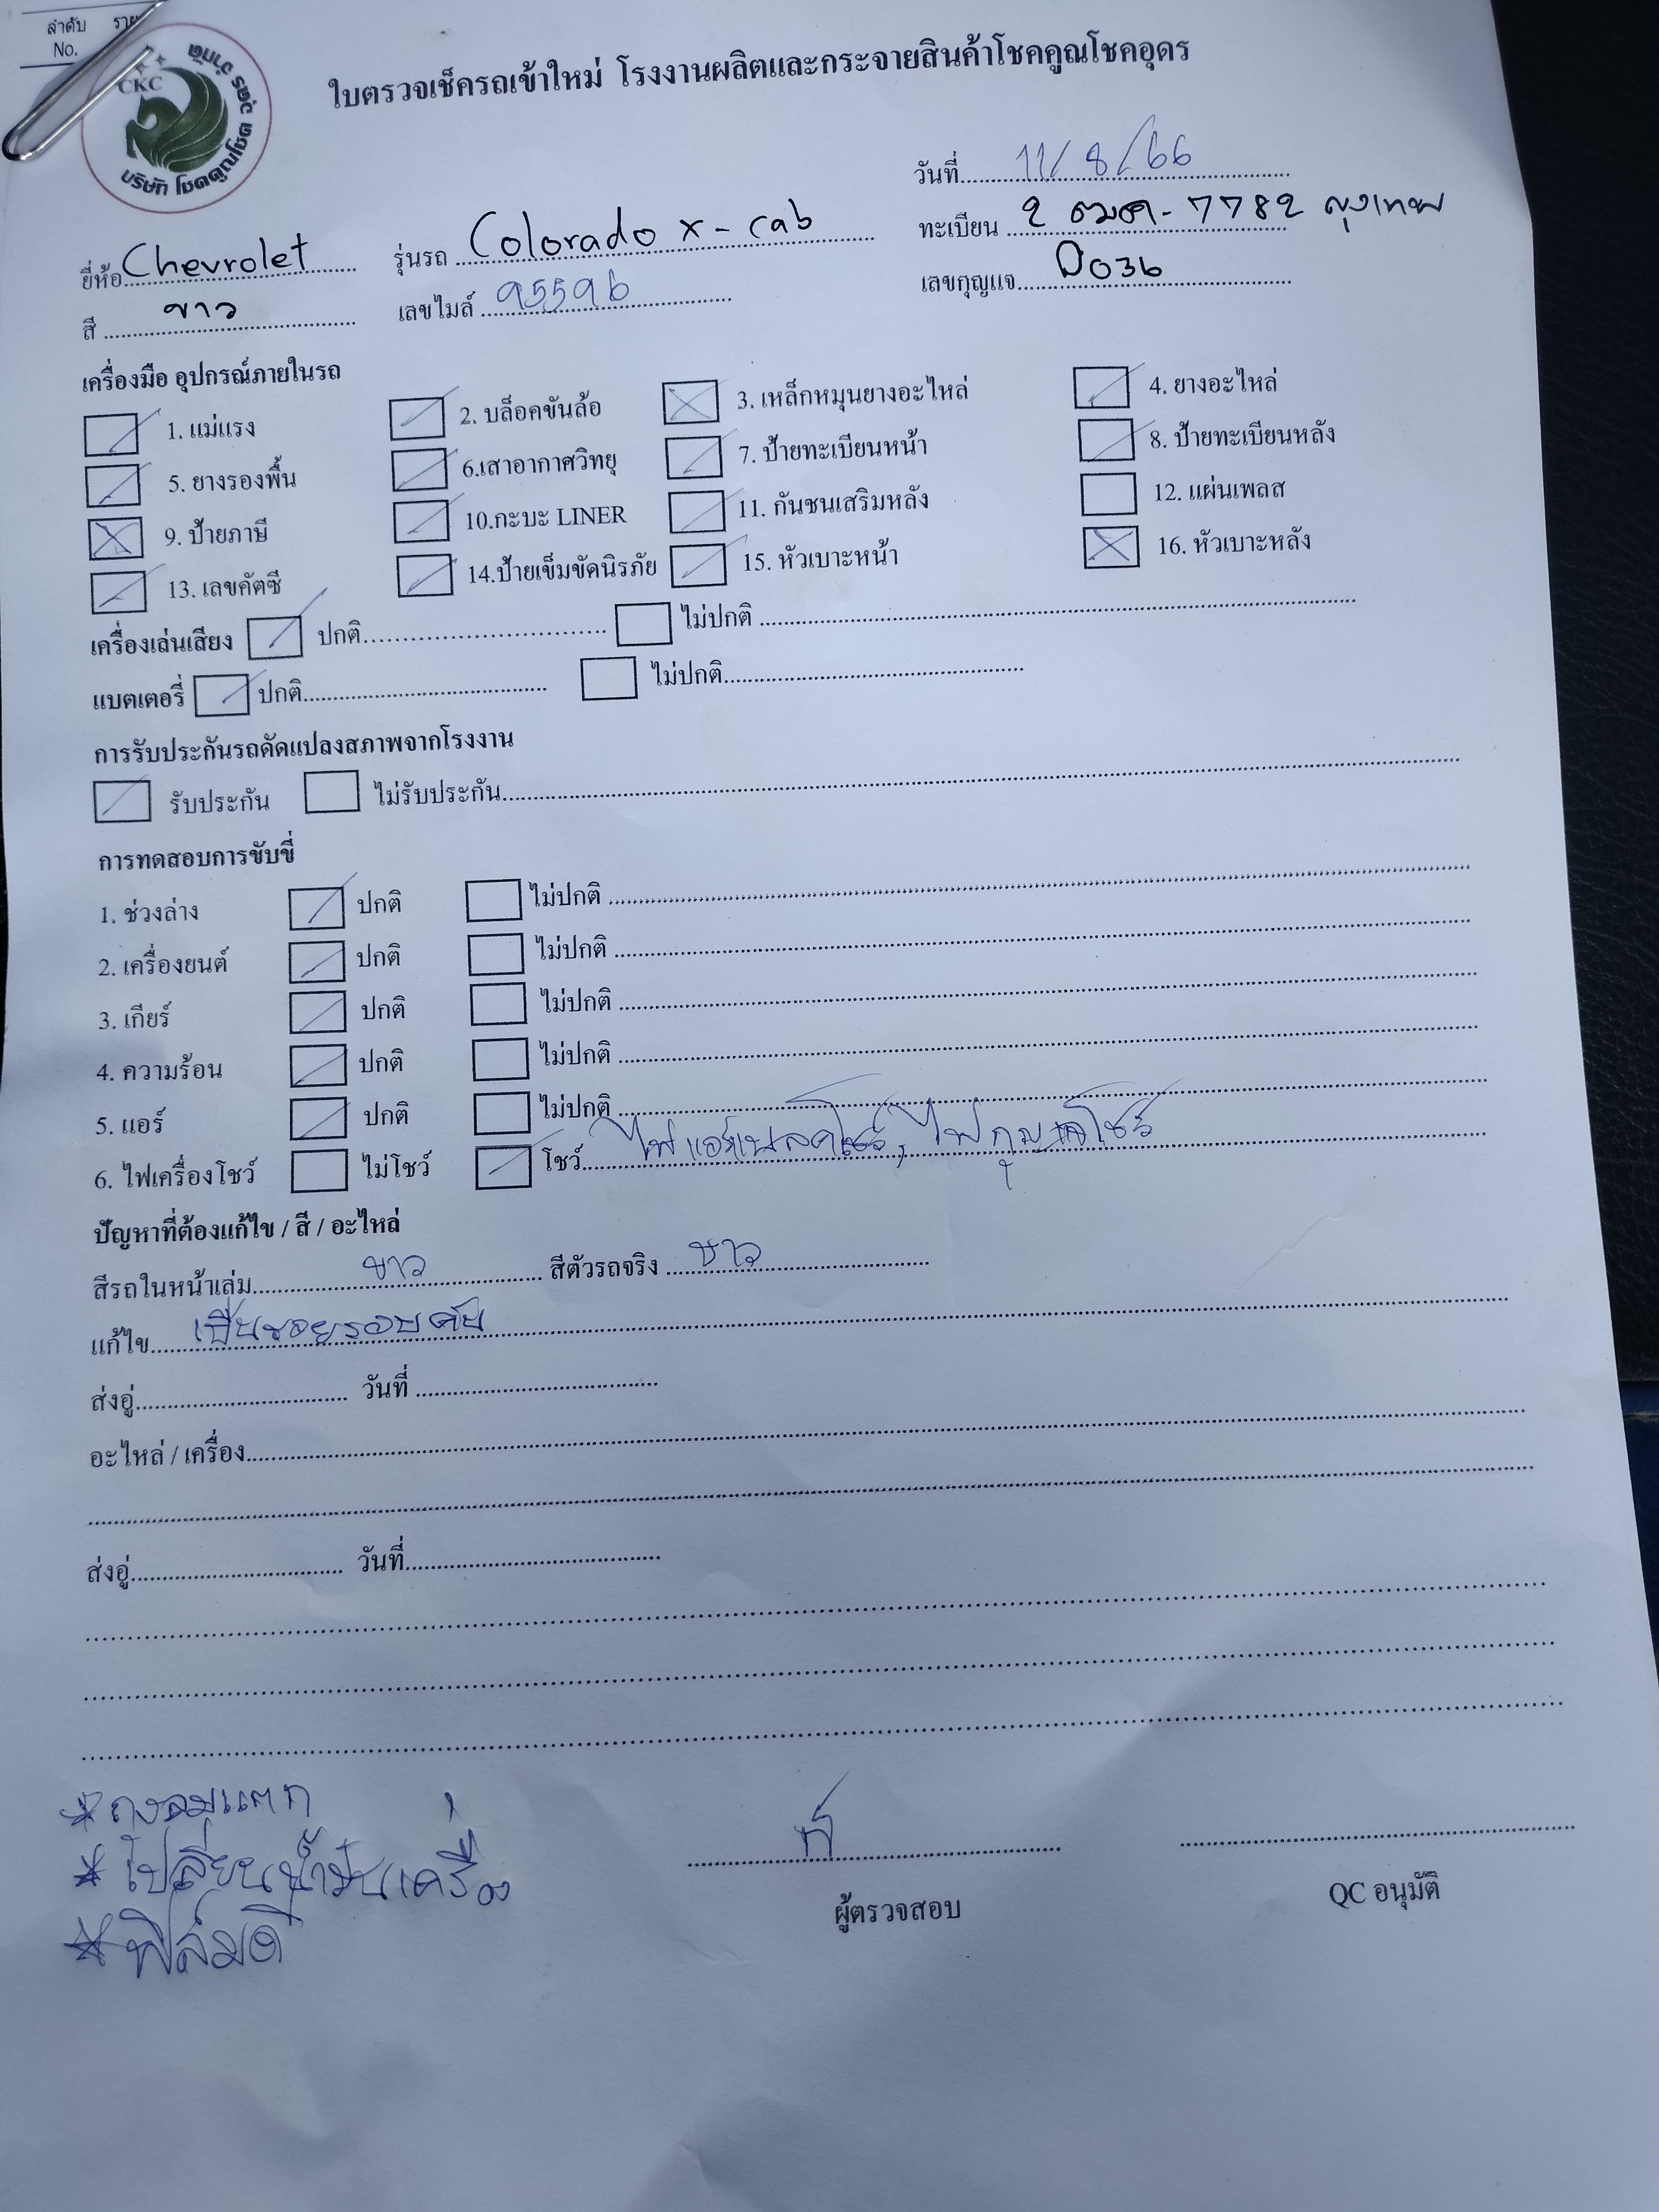 ลำดับ
No.
CKC
บริษัท โชคคูณโชค อุดร จำกัด
ใบตรวจเช็ครถเข้าใหม่ โรงงานผลิตและกระจายสินค้าโชคคูณโชคอุดร
วันที่ 11/8/66
ยี่ห้อ Chevrolet รุ่นรถ Colorado x-cab ทะเบียน 2 ฒฒ-7782 กรุงเทพ
สี ขาว เลขไมล์ 95596 เลขกุญแจ D036
เครื่องมือ อุปกรณ์ภายในรถ
1. แม่แรง 2. บล็อคขันล้อ 3. เหล็กหมุนยางอะไหล่ 4. ยางอะไหล่
5. ยางรองพื้น 6.เสาอากาศวิทยุ 7. ป้ายทะเบียนหน้า 8. ป้ายทะเบียนหลัง
9. ป้ายภาษี 10.กะบะ LINER 11. กันชนเสริมหลัง 12. แผ่นเพลส
13. เลขคัตซี 14.ป้ายเข็มขัดนิรภัย 15. หัวเบาะหน้า 16. หัวเบาะหลัง
เครื่องเล่นเสียง ปกติ ไม่ปกติ
แบตเตอรี่ ปกติ ไม่ปกติ
การรับประกันรถดัดแปลงสภาพจากโรงงาน
รับประกัน ไม่รับประกัน
การทดสอบการขับขี่
1. ช่วงล่าง ปกติ ไม่ปกติ
2. เครื่องยนต์ ปกติ ไม่ปกติ
3. เกียร์ ปกติ ไม่ปกติ
4. ความร้อน ปกติ ไม่ปกติ
5. แอร์ ปกติ ไม่ปกติ
6. ไฟเครื่องโชว์ ไม่โชว์ โชว์ ไฟแอร์แบคโชว์, ไฟกุญแจโชว์
ปัญหาที่ต้องแก้ไข / สี / อะไหล่
สีรถในหน้าเล่ม ขาว สีตัวรถจริง ขาว
แก้ไข เป็นรอยรอบคัน
ส่งอู่ วันที่
อะไหล่ / เครื่อง
ส่งอู่ วันที่
* ถุงลมแตก
* เปลี่ยนน้ำมันเครื่อง
* ฟิล์มดี
ผู้ตรวจสอบ
QC อนุมัติ